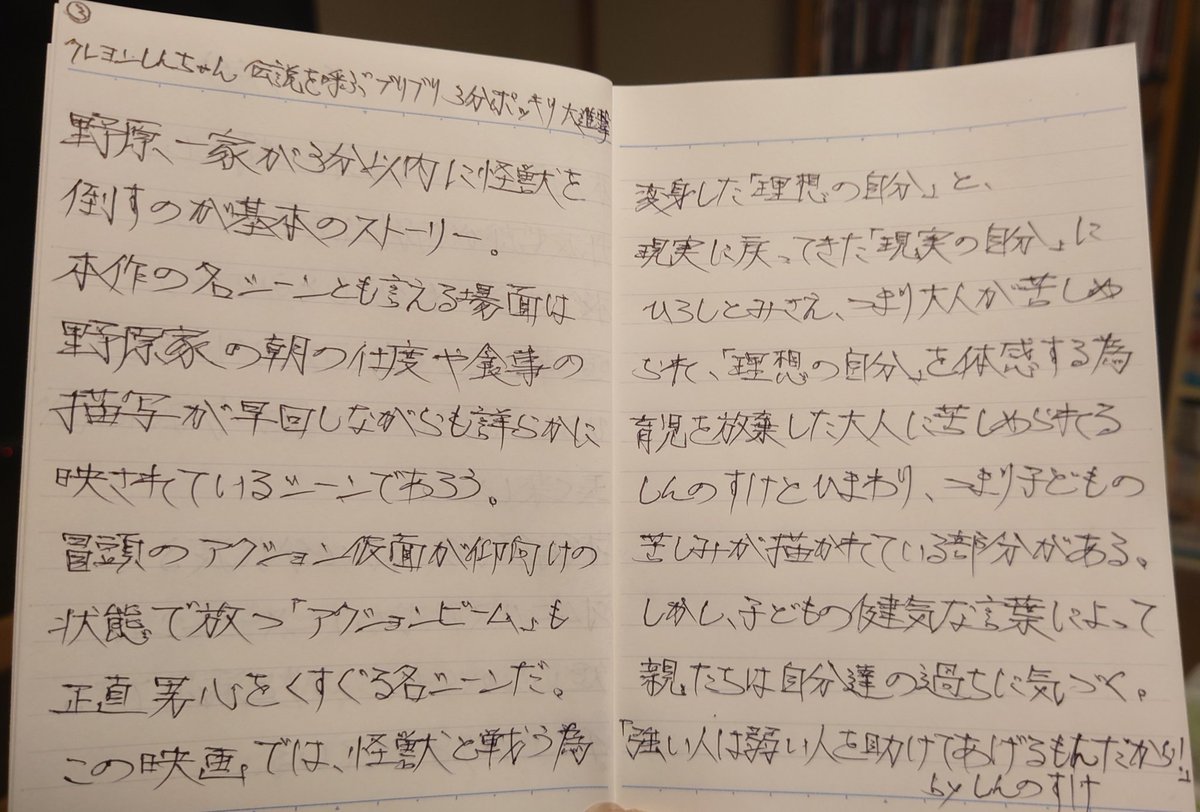 ③
クレヨンしんちゃん 伝説を呼ぶブリブリ 3分ポッキリ大進撃
野原一家が3分以内に怪獣を
倒すのが基本のストーリー。
本作の名シーンとも言える場面は
野原家の朝の仕度や食事の
描写が早回しながらも詳らかに
映されているシーンであろう。
冒頭のアクション仮面が仰向けの
状態で放つ「アクションビーム」も
正直男心をくすぐる名シーンだ。
この映画では、怪獣と戦う為
変身した「理想の自分」と、
現実に戻ってきた「現実の自分」に
ひろしとみさえ、つまり大人が苦しめ
られて、「理想の自分」を体感する為
育児を放棄した大人に苦しめられてる
しんのすけとひまわり、つまり子どもの
苦しみが描かれている部分がある。
しかし、子どもの健気な言葉によって
親たちは自分達の過ちに気づく。
「強い人は弱い人を助けてあげるもんだから!」
by しんのすけ